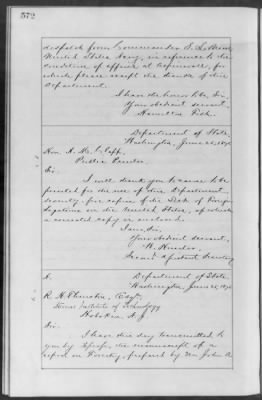 572
despatch from Commander
United States Navy, in reference to the
condition of affairs at
which please accept the thanks of this
Department.
I have the honor to be, Sir,
Your obedient servant,
Hamilton Fish.
Department of State,
Washington, June
Hon. A. M. Clapp,
Public Printer.
Sir:
I will thank you to cause to be
printed for the use of this Department
copies of the List of Foreign
Legations in the United States, of which
a corrected copy is enclosed.
I am, Sir,
Your obedient servant,
W. Hunter,
Second Assistant Secretary
Department of State,
Washington, June
R. H. Thurston, Esq.
Stevens Institute of Technology
Hoboken N. J.
Sir:
I have this day transmitted to
you by Express, the manuscript of a
report on Forestry, prepared by Mr John A.